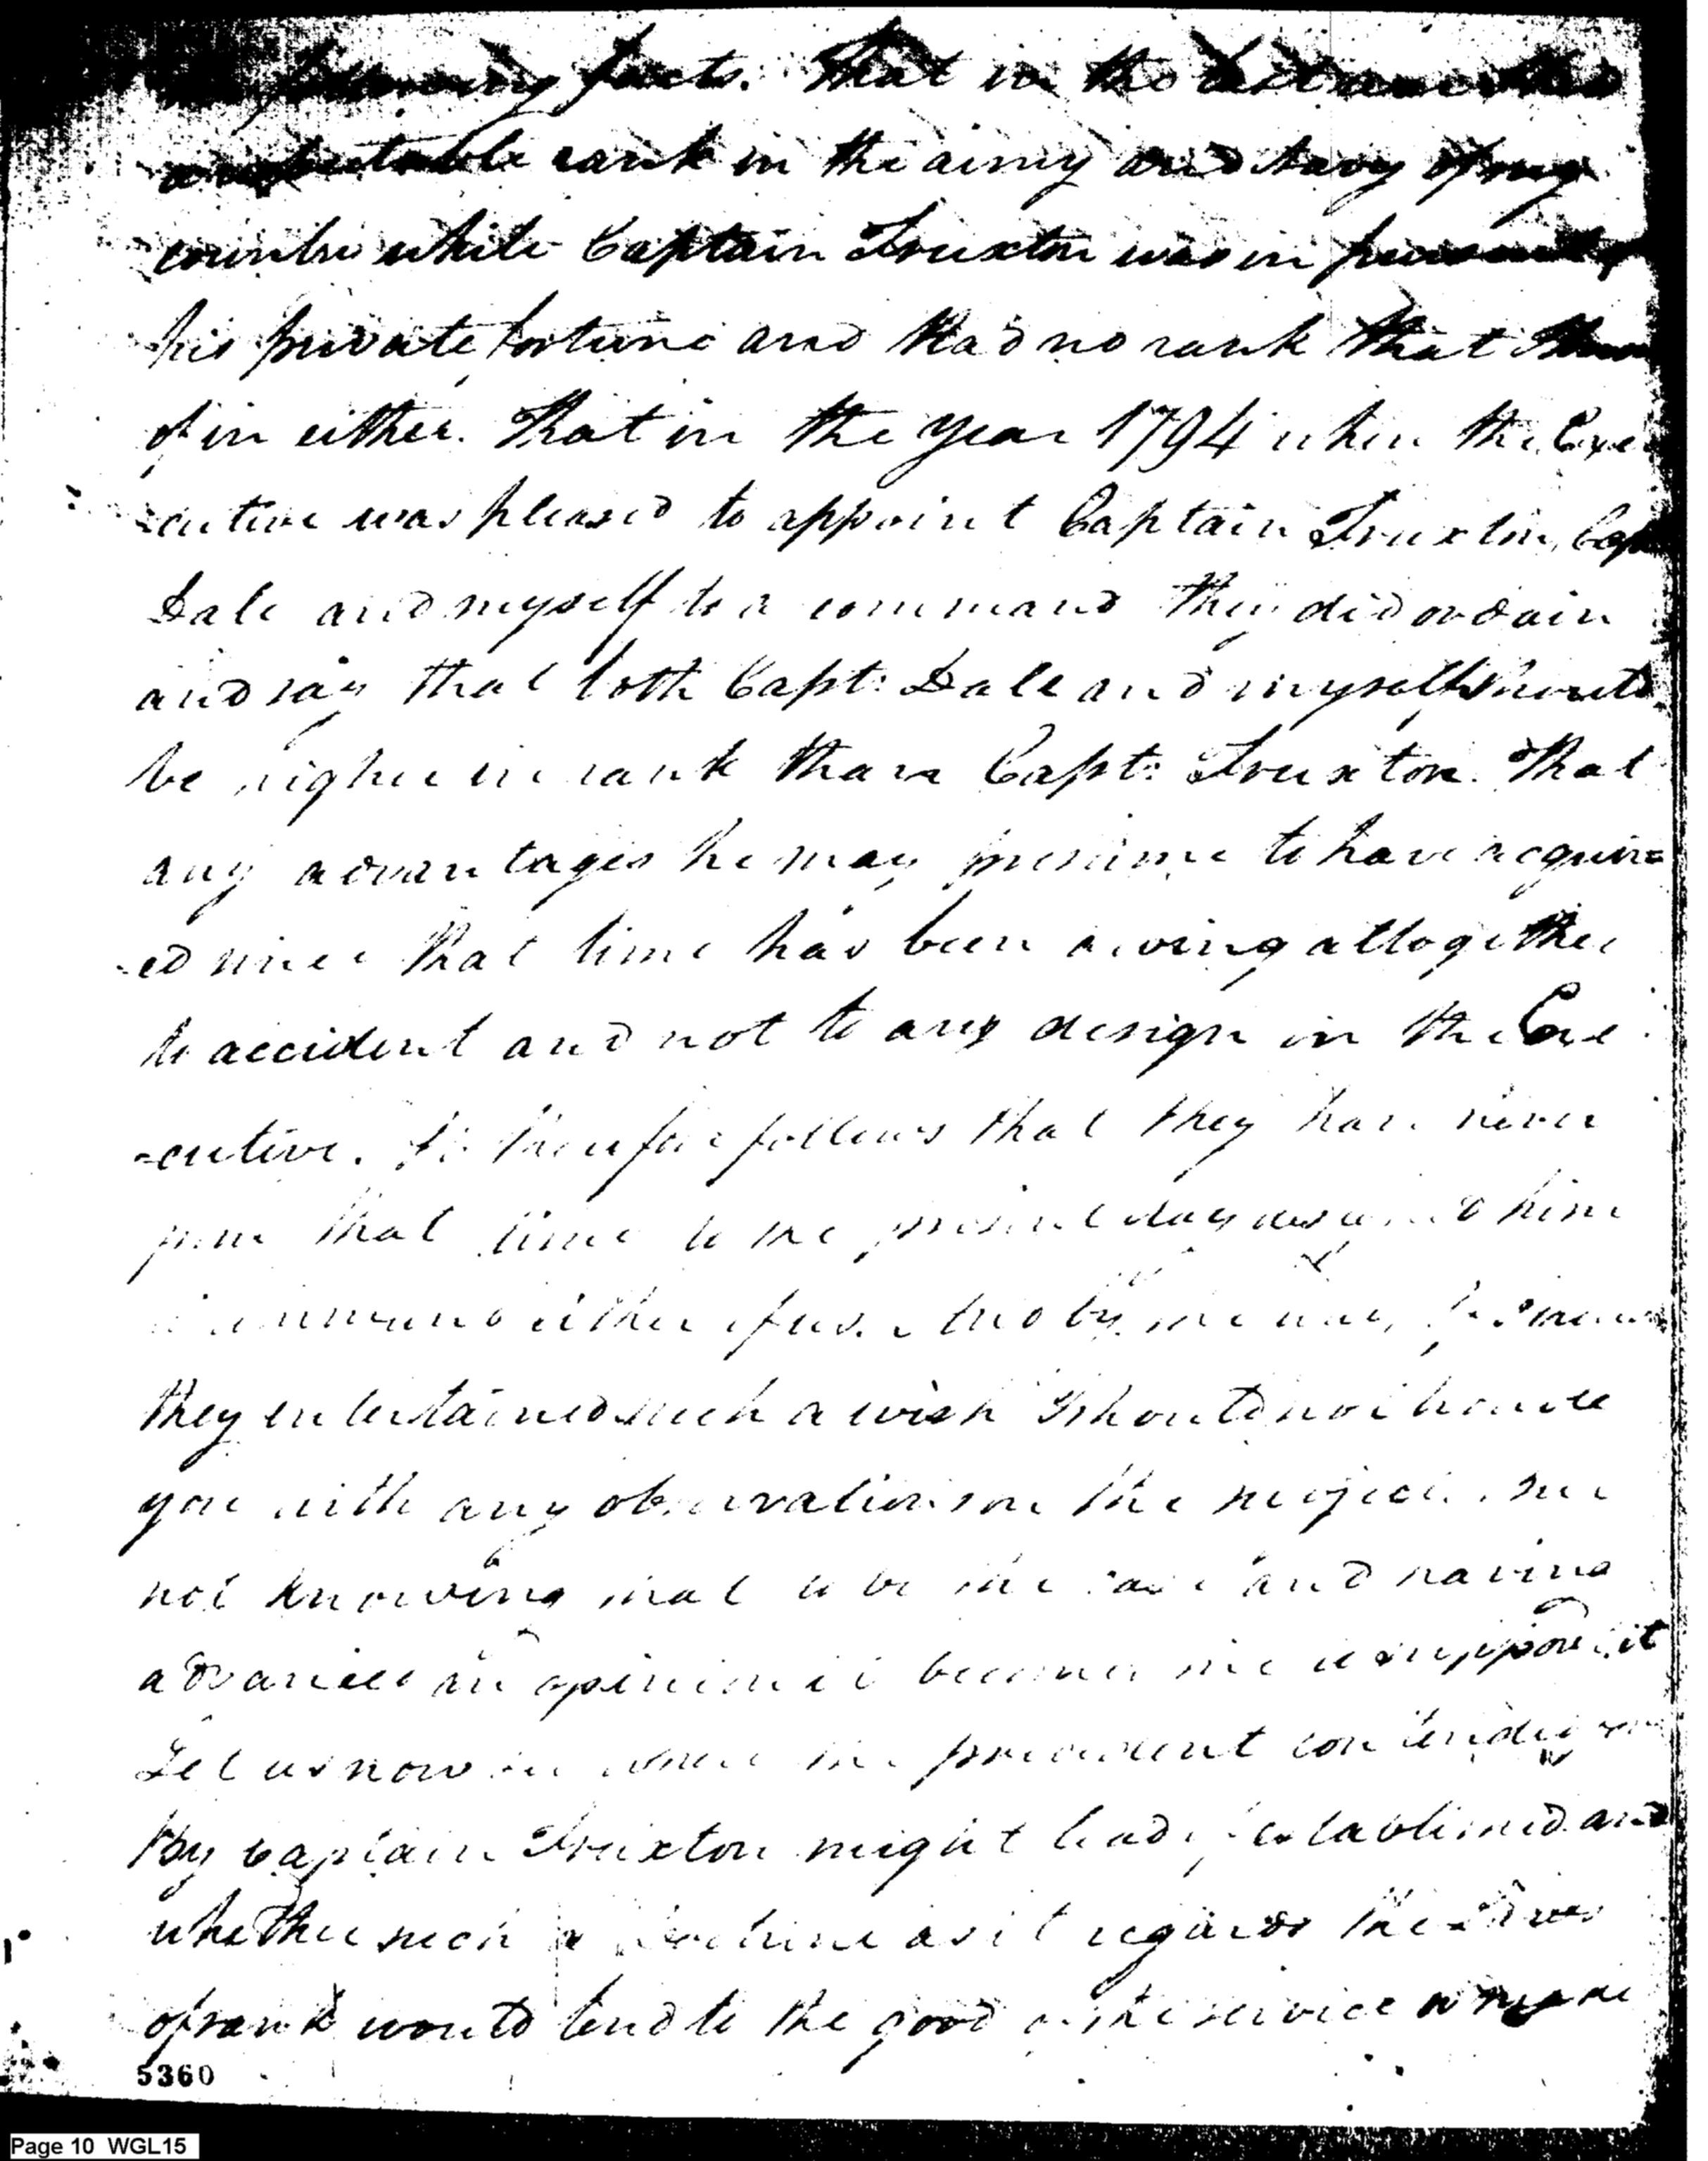 following facts. That in the last
a respectable rank in the army and Navy of my
country while Captain Truxton was in pursuit of
his private fortune and had no rank that I know
of in either. That in the year 1794 when the Exe
-cutive was pleased to appoint Captain Truxton, Capt
Dale and myself to a command they did ordain
and say that both Capt: Dale and myself should
be higher in rank than Capt: Truxton. That
any advantages he may presume to have acquir=
-ed since that time has been owing alltogether
to accident and not to any design in the Exe
-cutive. It therefore follows that they have never
from that time to the present day designed him
to command either of us. And by the way, I know
they entertained such a wish I should not trouble
you with any observations on the subject. But
not knowing that to be the case and having
advanced an opinion it becomes me to support it
Let us now see where the precedent contended for
by Captain Truxton might lead if established and
whether such a doctrine as it regards the
of rank would tend to the good of the service
5360
Page 10 WGL15